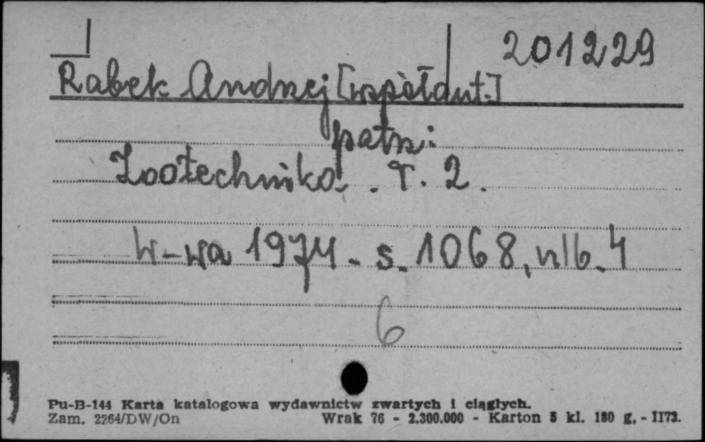 201229
Rabek Andrzej [współaut.]
patrz:
Zootechnika. T. 2.
W-wa 1974. s. 1068, nlb. 4
6
Pu-B-144 Karta katalogowa wydawnictw zwartych i ciągłych.
Zam. 2264/DW/On Wrak 76 - 2.300.000 - Karton 5 kl. 180 g. - II73.